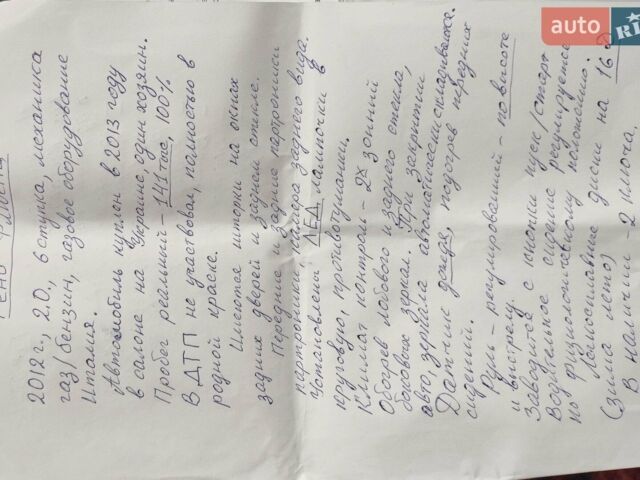 РЕНО Флюенс
2012г., 2.0., 6 ступка, механика
газ/бензин, газовое оборудование
Италия.
Автомобиль куплен в 2013 году
в салоне на Украине, один хозяин.
Пробег реальный - 141 тыс, 100%
В ДТП не участвовал, полностью в
родной краске.
Имеются шторки на окнах
задних дверей и заднем стекле.
Передние и задние партроники
партроники, камера заднего вида.
Установлены ЛЕД лампочки в
круговую, противотуманки.
Климат контрол - 2х зонный
Обогрев лобового и заднего стекла,
боковых зеркал. При закрытии
авто, зеркала автоматически складываются.
Датчик дождя, подогрев передних
сидений.
Руль - регулированный - по высоте
и вылету.
Заводится с кнопки пуск/старт
Водительское сидение регулируется
по физиологическому положению.
Легкосплавные диски на 16
(зима лето)
В наличии - 2 ключа.
auto
RI